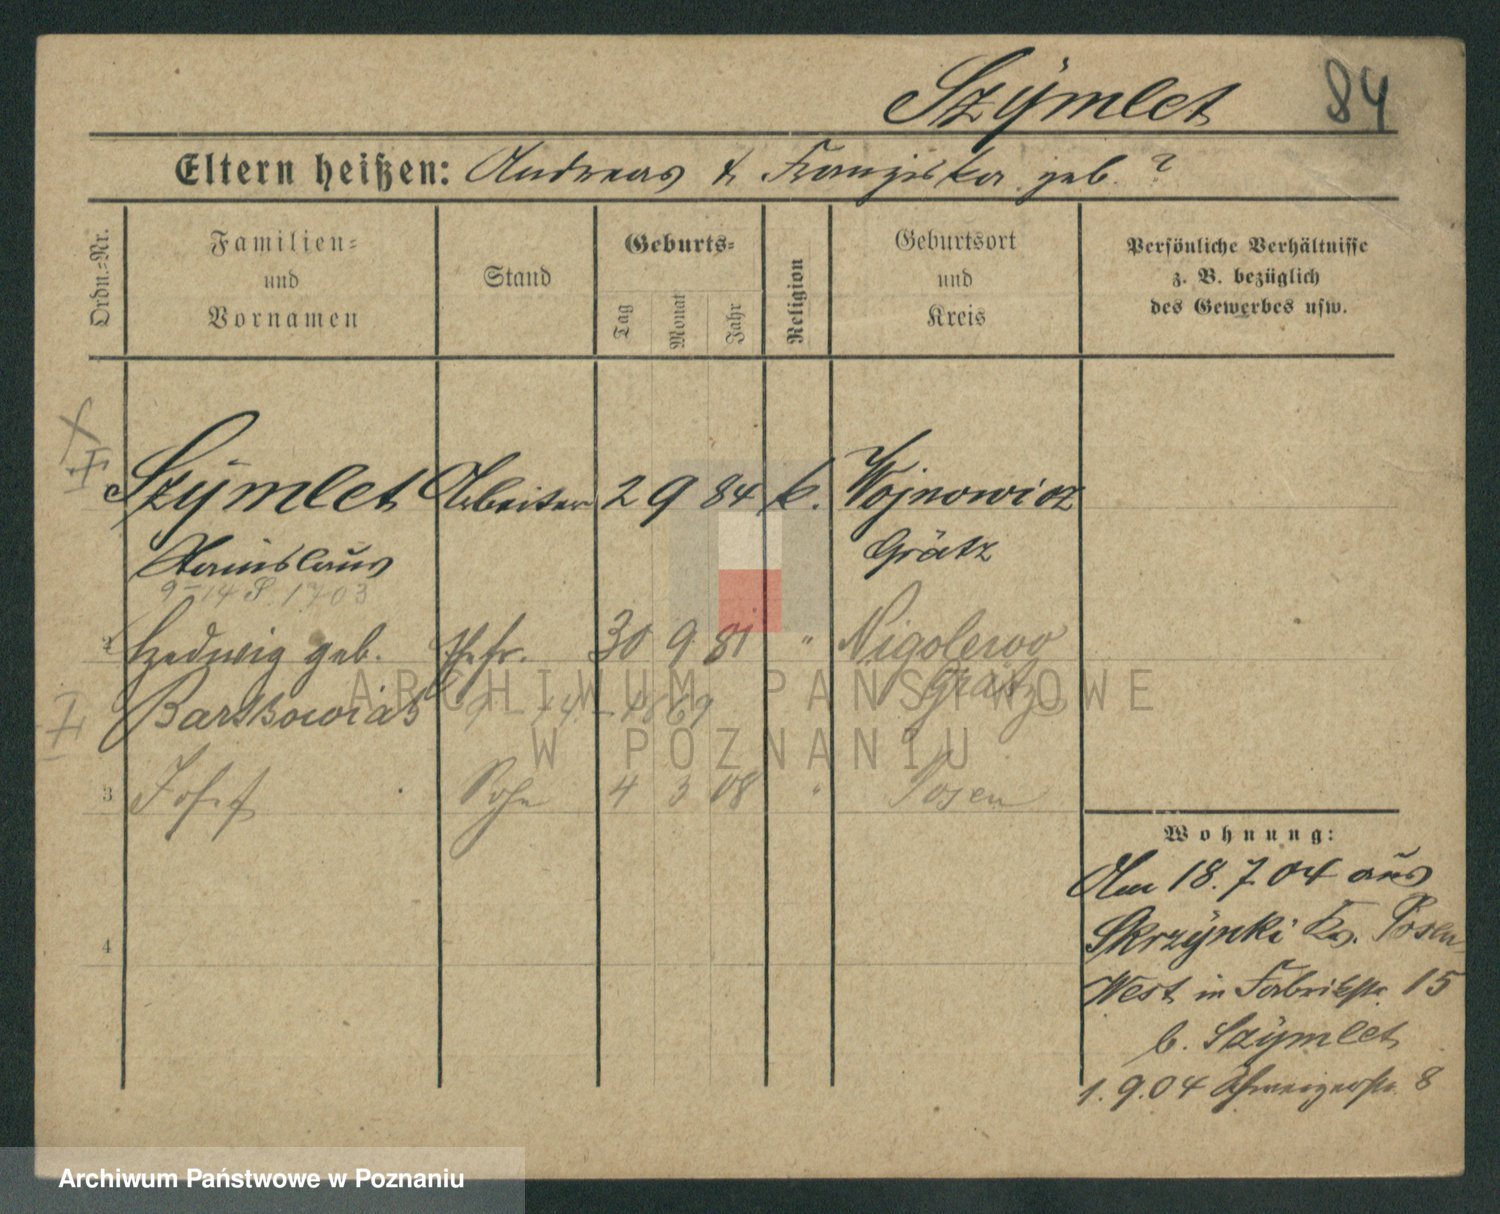 Szÿmlet 84
Eltern heißen: Andreas & Franziska geb. ?
Ordn.-Nr.
Familien-
und
Vornamen
Stand
Geburts-
Tag
Monat
Jahr
Religion
Geburtsort
und
Kreis
Persönliche Verhältnisse
z. B. bezüglich
des Gewerbes usw.
Szÿmlet Arbeiter 2 9 84 k. Wojnowicz
Stanislaus Grätz
9-14 S. 1703
2 Hedwig geb. Ehefr. 30 9 81 " Nigolewo
Bartkowiak Grätz
3 Josef Sohn 4 3 08 " Posen
4
Wohnung:
Am 18.7.04 aus
Skrzÿnki Krs. Posen
West in Fabrikstr 15
b. Szÿmlet
1.9.04 8
ARCHIWUM PAŃSTWOWE
W POZNANIU
Archiwum Państwowe w Poznaniu